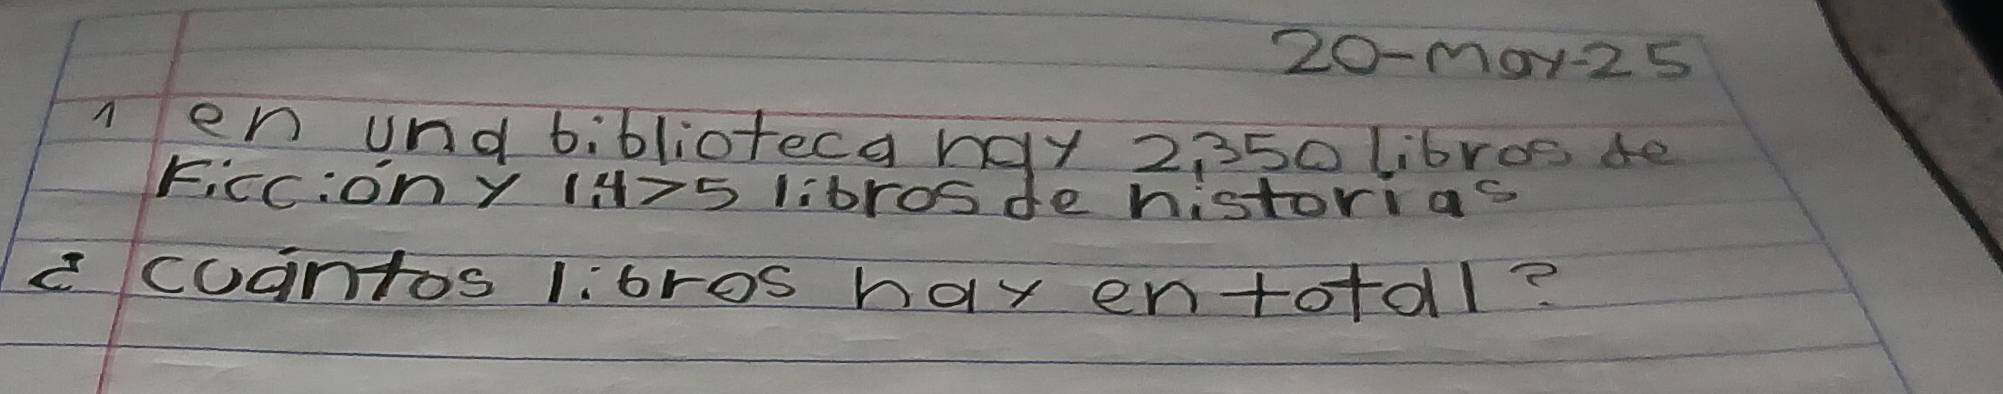 20-May-25
1 en una biblioteca hay 2,350 libros de
Ficción y 1,475 libros de historias
¿ cuántos libros hay en total?